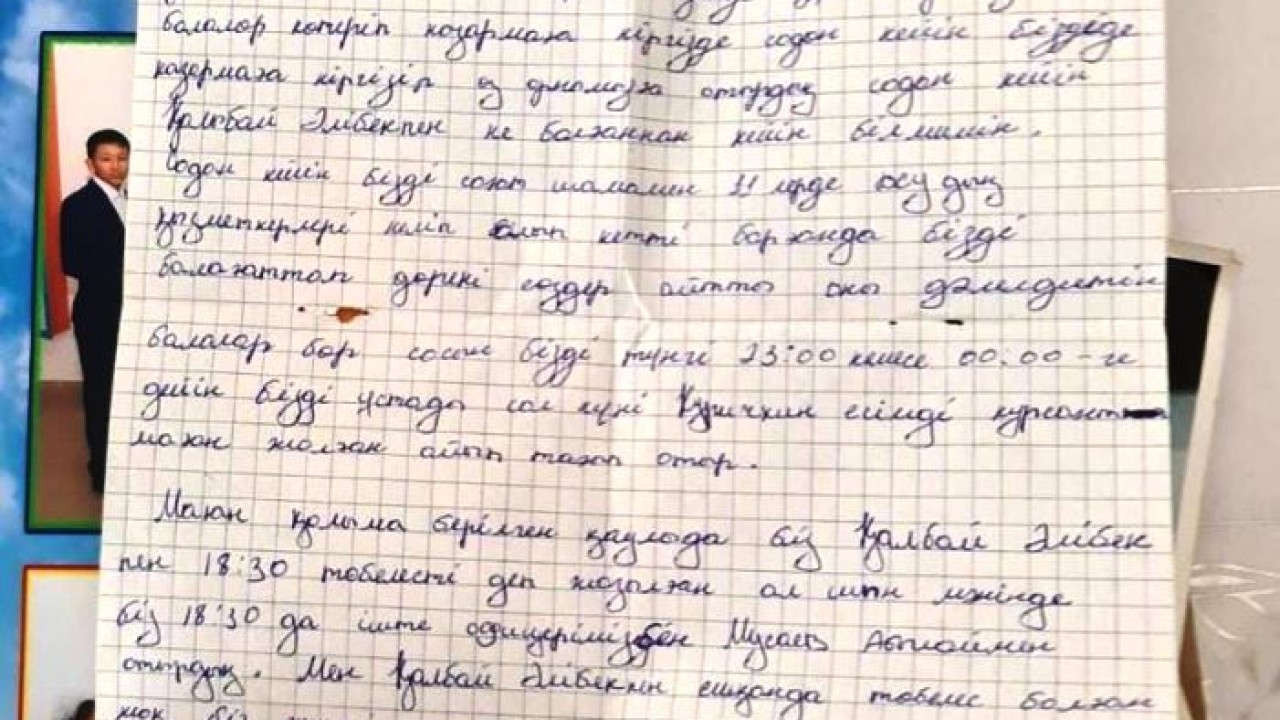 балалар көтеріп казармаға кіргізде содан кейін біздіде
казармаға кіргізіп өз орнымызға отырдық содан кейін
Қалбай Әлібекпен не болғаннан кейін білмимін.
Содан кейін бізді сағат шамамен 11 лерде
қызметкерлері келіп алып кетті барғанда бізді
балағаттап дөрекі сөздер айтты оны дәлелдейтін
балалар бар сосын бізді түнгі 23:00 кеше 00:00-ге
дейін бізді ұстады сол күні есімді курсант
маған жалған айып тағып отыр.
Маған қолыма берілген қаулыда біз Қалбай Әлібек
пен 18:30 төбелесті деп жазылған ал шын мәнінде
біз 18:30 да іште офицерімізбен
отырдық. Мен Қалбай Әлібекпен ешқанда төбелес болған
жоқ біз